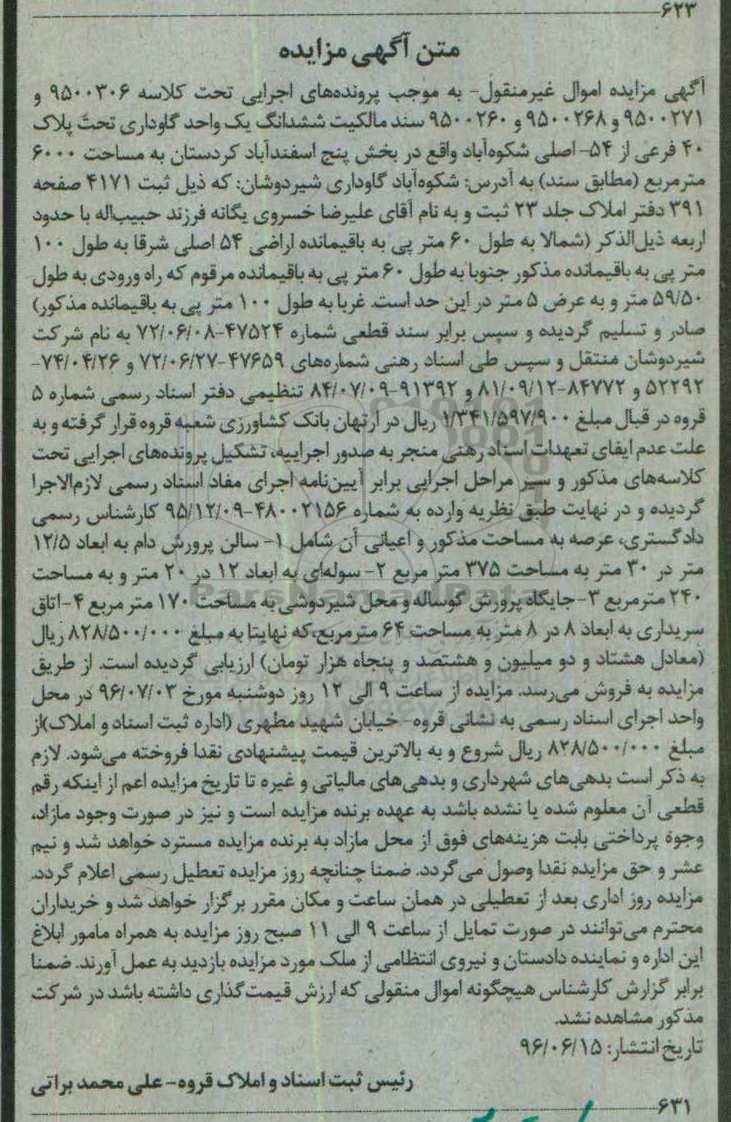 ۶۲۳
متن آگهی مزایده
آگهی مزایده اموال غیرمنقول- به موجب پرونده‌های اجرایی تحت کلاسه ۹۵۰۰۳۰۶ و
۹۵۰۰۲۷۱ و ۹۵۰۰۲۶۸ و ۹۵۰۰۲۶۰ سند مالکیت ششدانگ یک واحد گاوداری تحت پلاک
۴۰ فرعی از ۵۴- اصلی شکوه‌آباد واقع در بخش پنج اسفندآباد کردستان به مساحت ۶۰۰۰
مترمربع (مطابق سند) به آدرس: شکوه‌آباد گاوداری شیردوشان: که ذیل ثبت ۴۱۷۱ صفحه
۳۹۱ دفتر املاک جلد ۲۳ ثبت و به نام آقای علیرضا خسروی یگانه فرزند حبیب‌اله با حدود
اربعه ذیل‌الذکر (شمالا به طول ۶۰ متر پی به باقیمانده اراضی ۵۴ اصلی شرقا به طول ۱۰۰
متر پی به باقیمانده مذکور جنوبا به طول ۶۰ متر پی به باقیمانده مرقوم که راه ورودی به طول
۵۹/۵۰ متر و به عرض ۵ متر در این حد است. غربا به طول ۱۰۰ متر پی به باقیمانده مذکور)
صادر و تسلیم گردیده و سپس برابر سند قطعی شماره ۴۷۵۲۴-۷۲/۰۶/۰۸ به نام شرکت
شیردوشان منتقل و سپس طی اسناد رهنی شماره‌های ۴۷۶۵۹-۷۲/۰۶/۲۷ و ۷۴/۰۴/۲۶-
۵۲۲۹۲ و ۸۴۷۷۲-۸۱/۰۹/۱۲ و ۹۱۳۹۲-۸۴/۰۷/۰۹ تنظیمی دفتر اسناد رسمی شماره ۵
قروه در قبال مبلغ ۱/۳۴۱/۵۹۷/۹۰۰ ریال در ارتهان بانک کشاورزی شعبه قروه قرار گرفته و به
علت عدم ایفای تعهدات اسناد رهنی منجر به صدور اجراییه، تشکیل پرونده‌های اجرایی تحت
کلاسه‌های مذکور و سیر مراحل اجرایی برابر آیین‌نامه اجرای مفاد اسناد رسمی لازم‌الاجرا
گردیده و در نهایت طبق نظریه وارده به شماره ۴۸۰۰۲۱۵۶-۹۵/۱۲/۰۹ کارشناس رسمی
دادگستری، عرصه به مساحت مذکور و اعیانی آن شامل ۱- سالن پرورش دام به ابعاد ۱۲/۵
متر در ۳۰ متر به مساحت ۳۷۵ متر مربع ۲- سوله‌ای به ابعاد ۱۲ در ۲۰ متر و به مساحت
۲۴۰ مترمربع ۳- جایگاه پرورش گوساله و محل شیردوشی به مساحت ۱۷۰ متر مربع ۴- اتاق
سریداری به ابعاد ۸ در ۸ متر به مساحت ۶۴ مترمربع، که نهایتا به مبلغ ۸۲۸/۵۰۰/۰۰۰ ریال
(معادل هشتاد و دو میلیون و هشتصد و پنجاه هزار تومان) ارزیابی گردیده است. از طریق
مزایده به فروش می‌رسد. مزایده از ساعت ۹ الی ۱۲ روز دوشنبه مورخ ۹۶/۰۷/۰۳ در محل
واحد اجرای اسناد رسمی به نشانی قروه- خیابان شهید مطهری (اداره ثبت اسناد و املاک)از
مبلغ ۸۲۸/۵۰۰/۰۰۰ ریال شروع و به بالاترین قیمت پیشنهادی نقدا فروخته می‌شود. لازم
به ذکر است بدهی‌های شهرداری و بدهی‌های مالیاتی و غیره تا تاریخ مزایده اعم از اینکه رقم
قطعی آن معلوم شده یا نشده باشد به عهده برنده مزایده است و نیز در صورت وجود مازاد،
وجوه پرداختی بابت هزینه‌های فوق از محل مازاد به برنده مزایده مسترد خواهد شد و نیم
عشر و حق مزایده نقدا وصول می‌گردد. ضمنا چنانچه روز مزایده تعطیل رسمی اعلام گردد.
مزایده روز اداری بعد از تعطیلی در همان ساعت و مکان مقرر برگزار خواهد شد و خریداران
محترم می‌توانند در صورت تمایل از ساعت ۹ الی ۱۱ صبح روز مزایده به همراه مامور ابلاغ
این اداره و نماینده دادستان و نیروی انتظامی از ملک مورد مزایده بازدید به عمل آورند. ضمنا
برابر گزارش کارشناس هیچگونه اموال منقولی که ارزش قیمت‌گذاری داشته باشد در شرکت
مذکور مشاهده نشد.
تاریخ انتشار: ۹۶/۰۶/۱۵
رئیس ثبت اسناد و املاک قروه- علی محمد براتی
۶۳۱
ParsNamadData